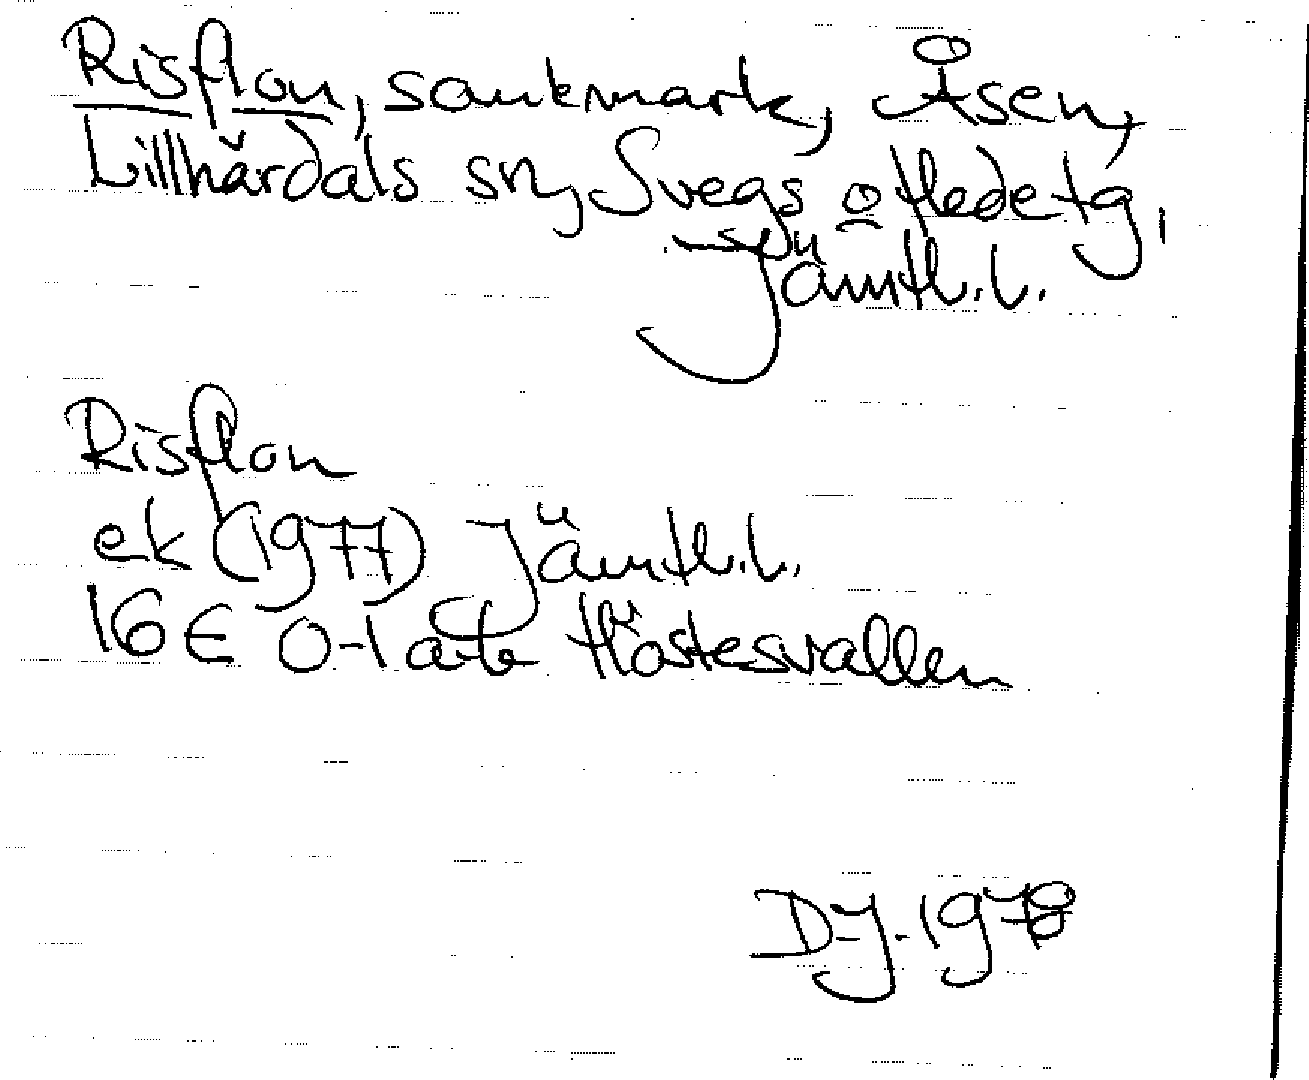 Risflon, sankmark, Åsen,
Lillhärdals sn, Svegs o Hede tg,
Jämtl.l.
Risflon
ek (1977) Jämtl.l.
16 E 0-1 a-b Höstesvallen
D-J. 1978